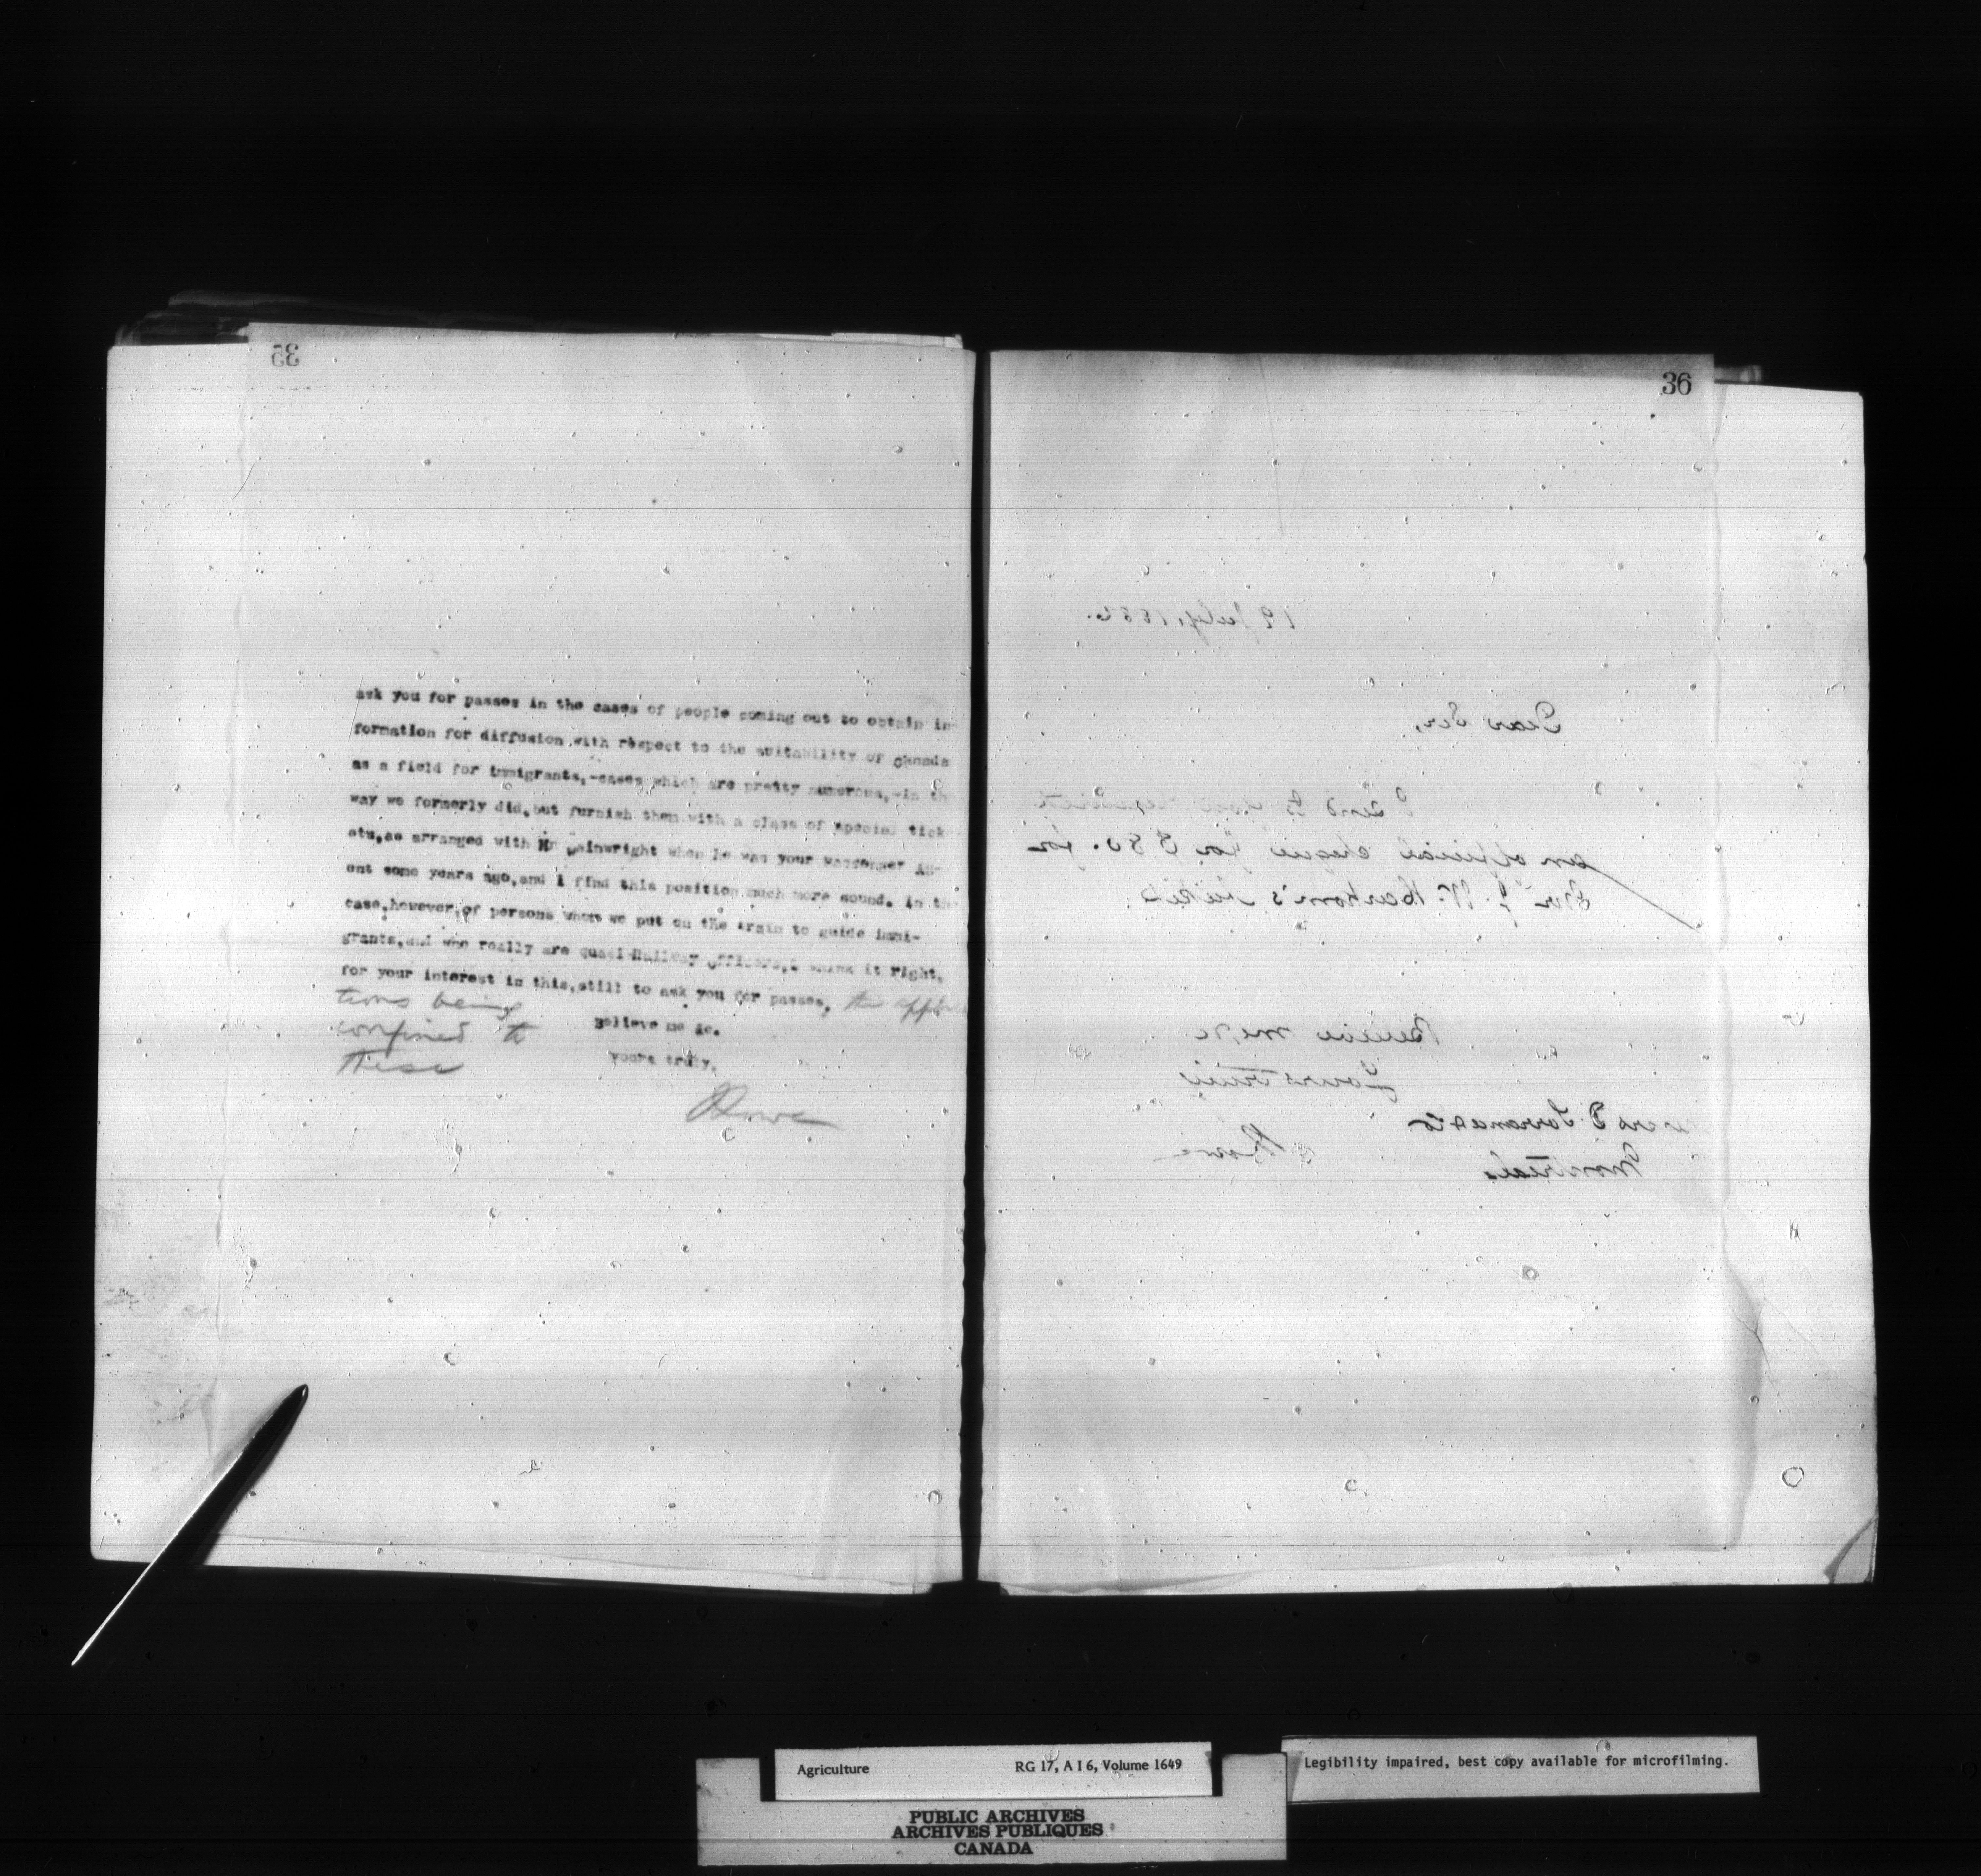 35
ask you for passes in the cases of people coming out to obtain in-
formation for diffusion with respect to the suitability of Canada
as a field for immigrants,-cases which are pretty numerous,-in the
way we formerly did, but furnish them with a class of special tick-
ets, as arranged with Mr Wainwright when he was your Passenger Ag-
ent some years ago, and I find this position much more sound. In the
case, however, of persons whom we put on the train to guide immi-
grants, and who really are quasi-Railway officers, I think it right,
for your interest in this, still to ask you for passes, the applica
tions being
confined to
these
Believe me &c.
yours truly,
JLowe
36
19 July, 188
Dear Sir,
I send to you herewith
an official cheque for $80. for
Mr J. W. 's tickets
Believe me &c
Yours truly
JLowe
Messrs D. Torrance & Co
Montreal
Agriculture RG 17, A I 6, Volume 1649
Legibility impaired, best copy available for microfilming.
PUBLIC ARCHIVES
ARCHIVES PUBLIQUES
CANADA